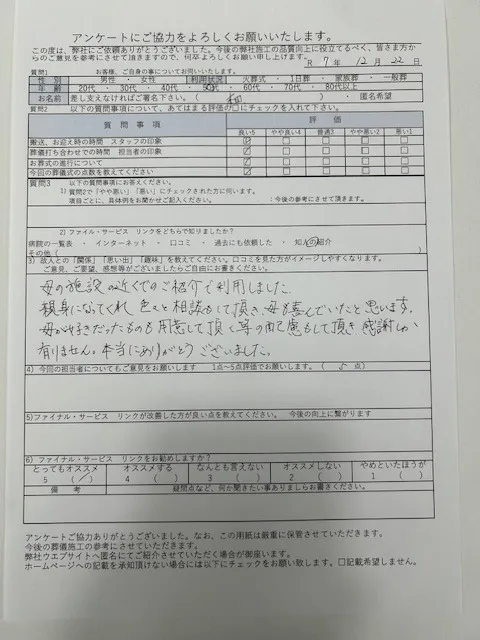 アンケートにご協力をよろしくお願いいたします。
この度は、弊社にご依頼ありがとうございました。今後の弊社施工の品質向上に役立てるべく、皆さま方か
らのご意見を参考にさせて頂きますので、何卒よろしくお願い申し上げます。
R 7年 12月 22日
質問1 お客様、ご自身の事についてお伺いいたします。
性別 男性 ・ 女性 利用状況 火葬式 ・ 1日葬 ・ 家族葬 ・ 一般葬
年齢 20代 ・ 30代 ・ 40代 ・ 50代 ・ 60代 ・ 70代 ・ 80代以上
お名前 差し支えなければご署名下さい。( ) ・ 匿名希望
質問2 以下の質問事項について、あてはまる評価の□にチェックを入れて下さい。
質問事項 評価
良い5 やや良い4 普通3 やや悪い2 悪い1
搬送、お迎え時の時間 スタッフの印象 ☑ □ □ □ □
葬儀打ち合わせでの時間 担当者の印象 ☑ □ □ □ □
お葬式の進行について ☑ □ □ □ □
今回の葬儀式の点数を教えてください ☑ □ □ □ □
質問3 以下の質問事項にお答えください。
1)質問2で「やや悪い」「悪い」にチェックされた方に伺います。
項目ごとに、具体例をお聞かせご記入ください。 :今後の参考にさせて頂きます。
2)ファイナル・サービス リンクをどちらで知りましたか?
病院の一覧表 ・ インターネット ・ 口コミ ・ 過去にも依頼した ・ 知人の紹介
その他( )
3)故人との「関係」「思い出」「趣味」を教えてください。口コミを見た方がイメージしやすくなります。
ご意見、ご要望、感想等がございましたらご自由にお書きください。
母の施設の近くでのご紹介で利用しました。
親身になってくれ 色々と相談もして頂き、母も喜んでいたと思います。
母が好きだったものも用意して頂く等の配慮もして頂き、感謝しか
有りません。本当にありがとうございました。
4)今回の担当者についてもご意見をお願いします 1点~5点評価でお願いします。( 5 点)
5)ファイナル・サービス リンクが改善した方が良い点を教えてください。 今後の向上に繋がります
6)ファイナル・サービス リンクをお勧めしますか?
とってもオススメ オススメする なんとも言えない オススメしない やめといたほうが
5 ( ✓ ) 4 ( ) 3 ( ) 2 ( ) 1 ( )
備考 疑問点など、何か聞きたい事ありましらお書きください。
アンケートご協力ありがとうございました。なお、この用紙は厳重に保管させていただきます。
今後の葬儀施工の参考にさせていただきます。
弊社ウエブサイトへ匿名にてご紹介させていただく場合が御座います。
ホームページへの記載を承知頂けない場合には以下にチェックをお願い致します。□記載希望しません。